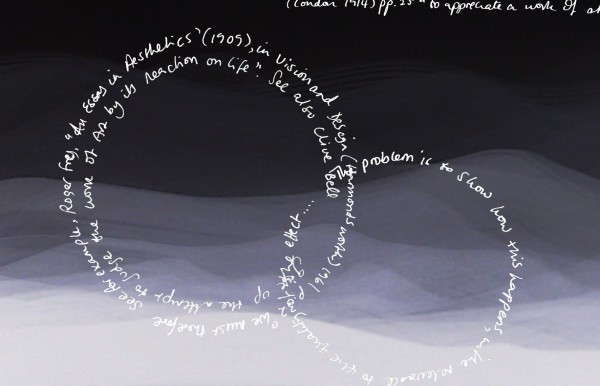 (London 1914) pp. 25 "to appreciate a work of
See, for example, Roger Fry, "An Essay in Aesthetics" (1909), in Vision and Design (Harmondsworth) 1961
"we must therefore
up the attempt to judge the work of Art by its reaction on life". See also Clive Bell
The problem is to show how this happens, in
relevance to the
effect....